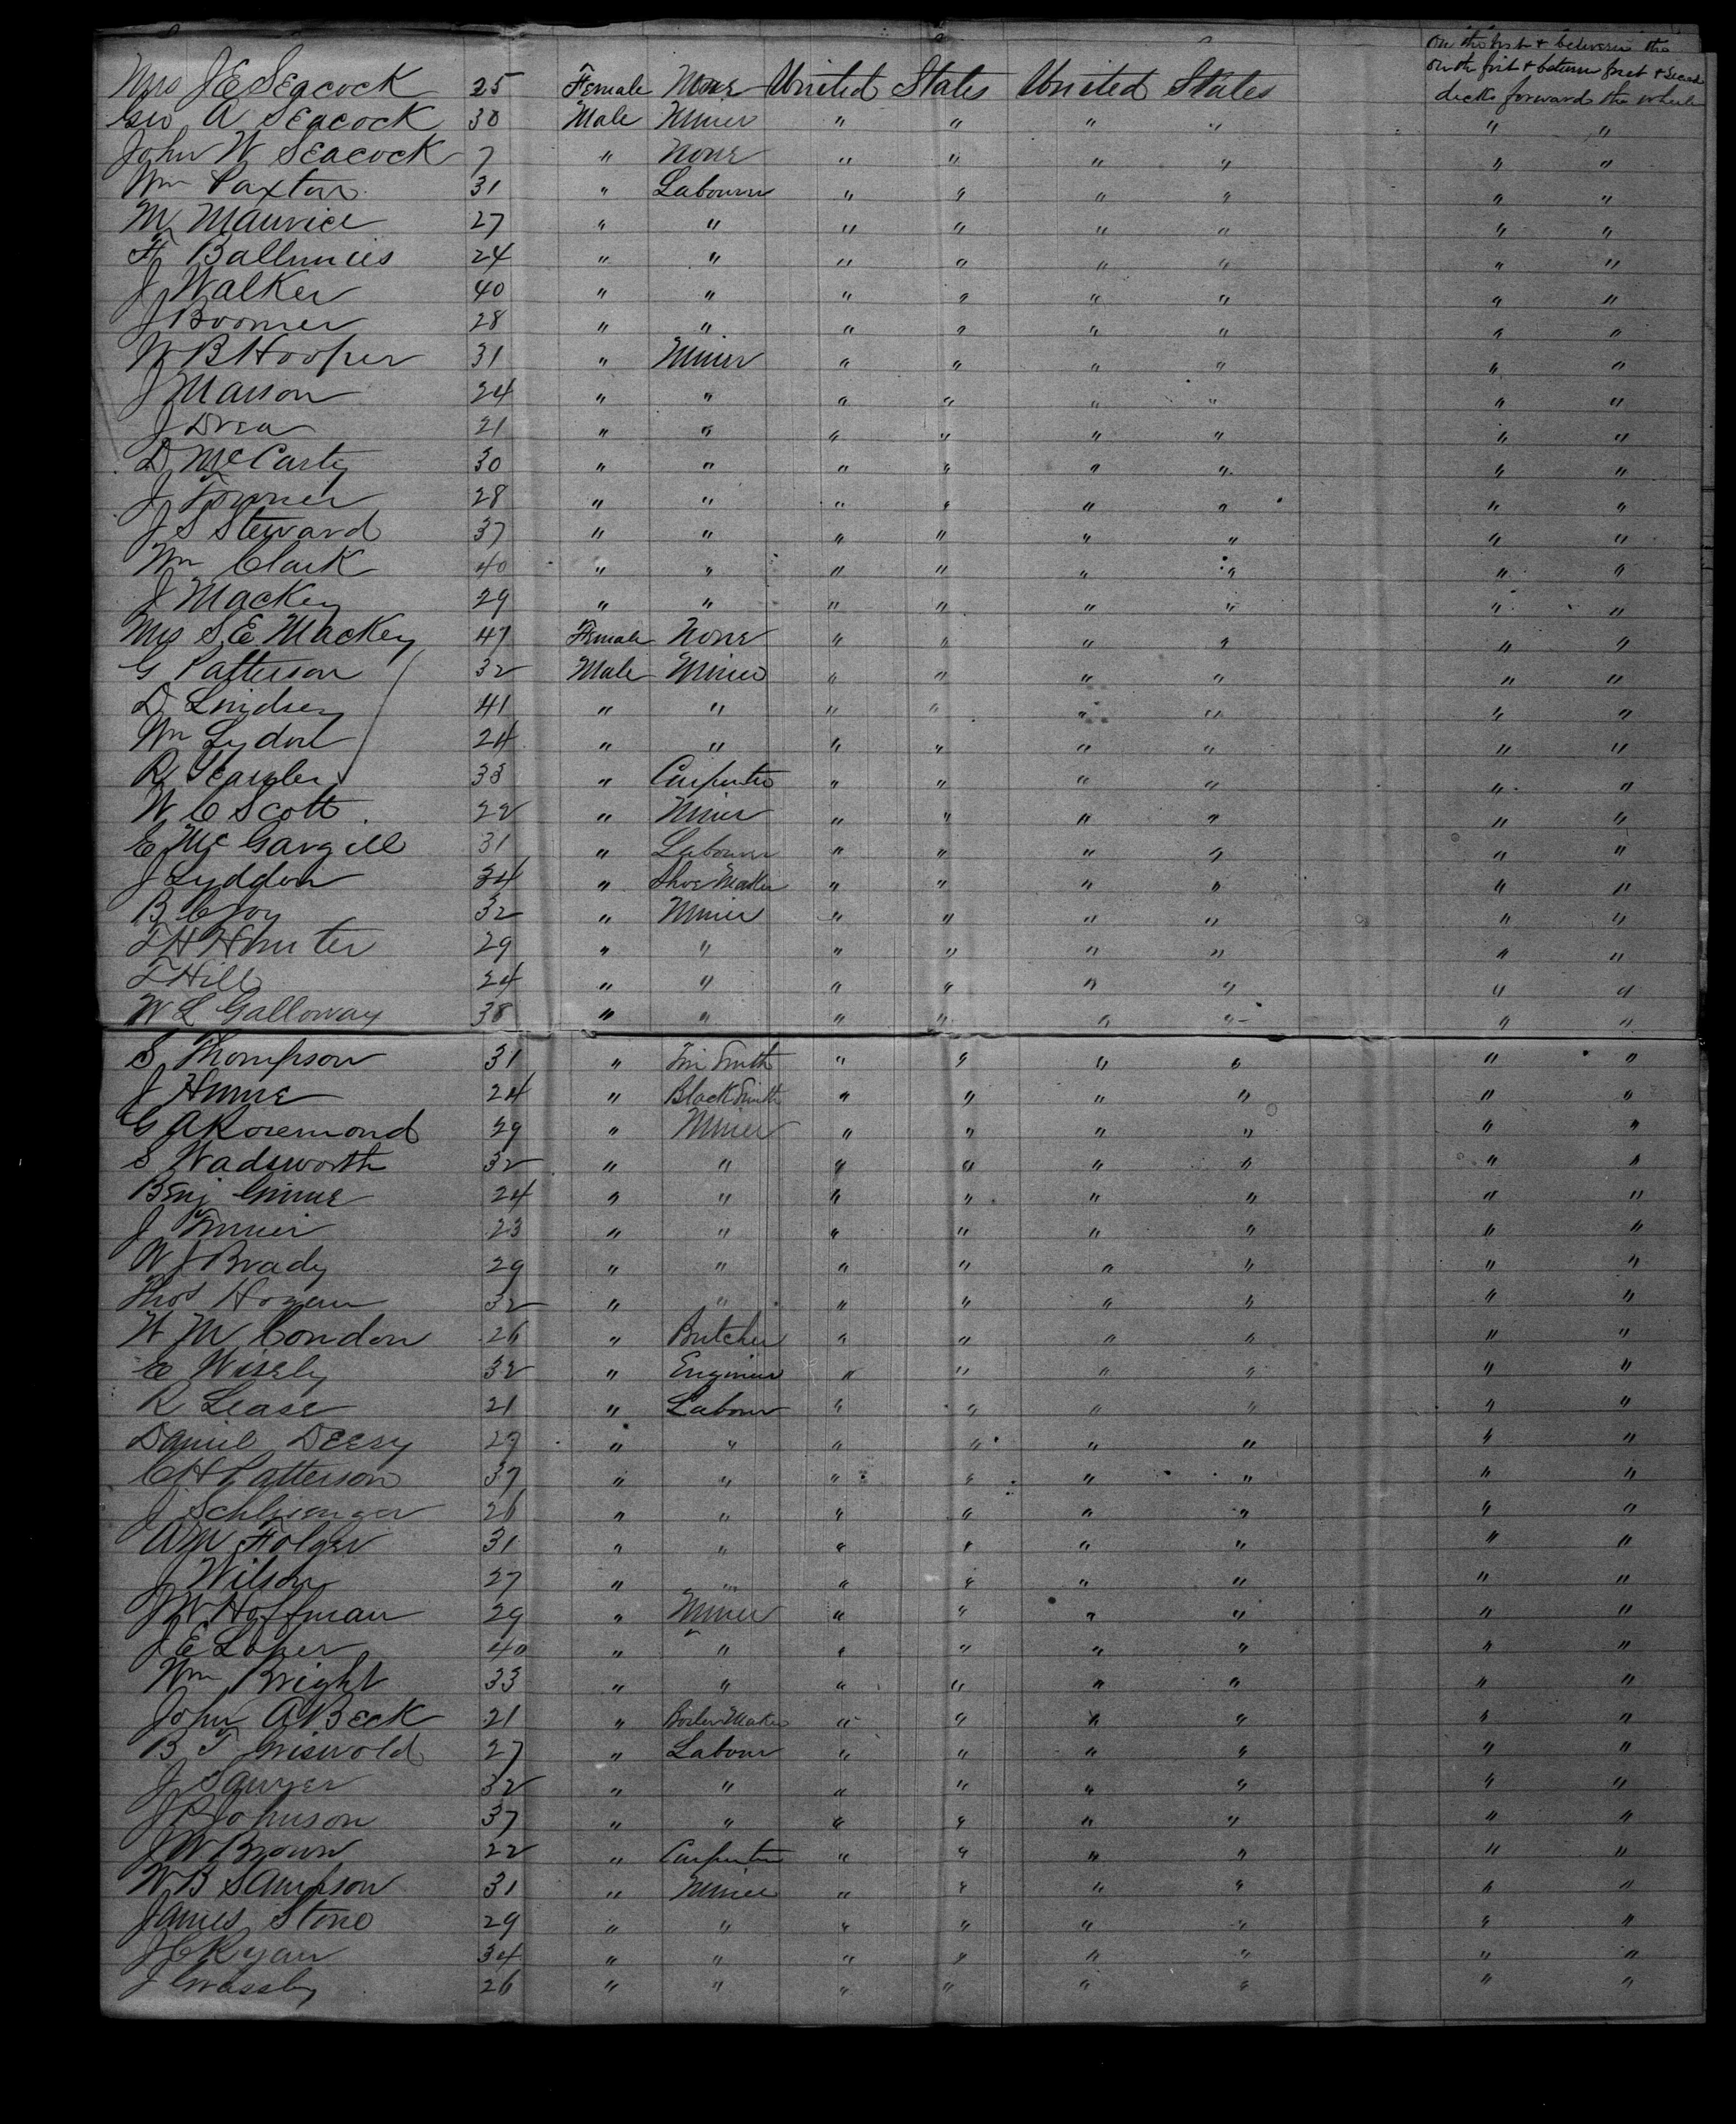 on the first & between the
Mrs J E Seacock 25 Female None United States United States on the first & between first & second
decks forward the wheel
Geo A Seacock 30 Male Miner " " " " " "
John W Seacock 7 " None " " " " " "
Wm Paxton 31 " Labourer " " " " " "
M Maurice 27 " " " " " " " "
24 " " " " " " " "
J Walker 40 " " " " " " " "
J Boomer 28 " " " " " " " "
W B Hooper 31 " Miner " " " " " "
J Marson 24 " " " " " " " "
J Drea 21 " " " " " " " "
D McCarty 30 " " " " " " " "
J 28 " " " " " " " "
J S Steward 37 " " " " " " " "
Wm Clark 40 " " " " " " " "
J Mackey 29 " " " " " " " "
Mrs S E Mackey 47 Female None " " " " " "
G Patterson 32 Male Miner " " " " " "
D Lindsey 41 " " " " " " " "
Wm 24 " " " " " " " "
R 33 " Carpenter " " " " " "
W C Scott 22 " Miner " " " " " "
E McGargill 31 " Labourer " " " " " "
J Lyddon 34 " Shoe Maker " " " " " "
B 32 " Miner " " " " " "
T H Hunter 29 " " " " " " " "
T Hill 24 " " " " " " " "
W L Galloway 38 " " " " " " " "
S Thompson 31 " Tin Smith " " " " " "
J Hume 24 " Black Smith " " " " " "
G A Rosemond 29 " Miner " " " " " "
S Wadsworth 32 " " " " " " " "
Benj 24 " " " " " " " "
J 23 " " " " " " " "
W J Brady 29 " " " " " " " "
Thos Hogan 32 " " " " " " " "
W M Condon 26 " Butcher " " " " " "
E Wisely 32 " Engineer " " " " " "
R Lease 21 " Labourer " " " " " "
Daniel Deesy 29 " " " " " " " "
C H Patterson 37 " " " " " " " "
J 26 " " " " " " " "
A M Folger 31 " " " " " " " "
J Wilson 27 " " " " " " " "
J W Hoffman 29 " Miner " " " " " "
J E Loper 40 " " " " " " " "
Wm Bright 33 " " " " " " " "
John A Beck 21 " Boiler Maker " " " " " "
B T Griswold 27 " Labour " " " " " "
J Sawyer 32 " " " " " " " "
J R Johnson 37 " " " " " " " "
J W Brown 22 " Carpenter " " " " " "
W B Sampson 31 " Miner " " " " " "
James Stone 29 " " " " " " " "
J C Ryan 34 " " " " " " " "
J 26 " " " " " " " "